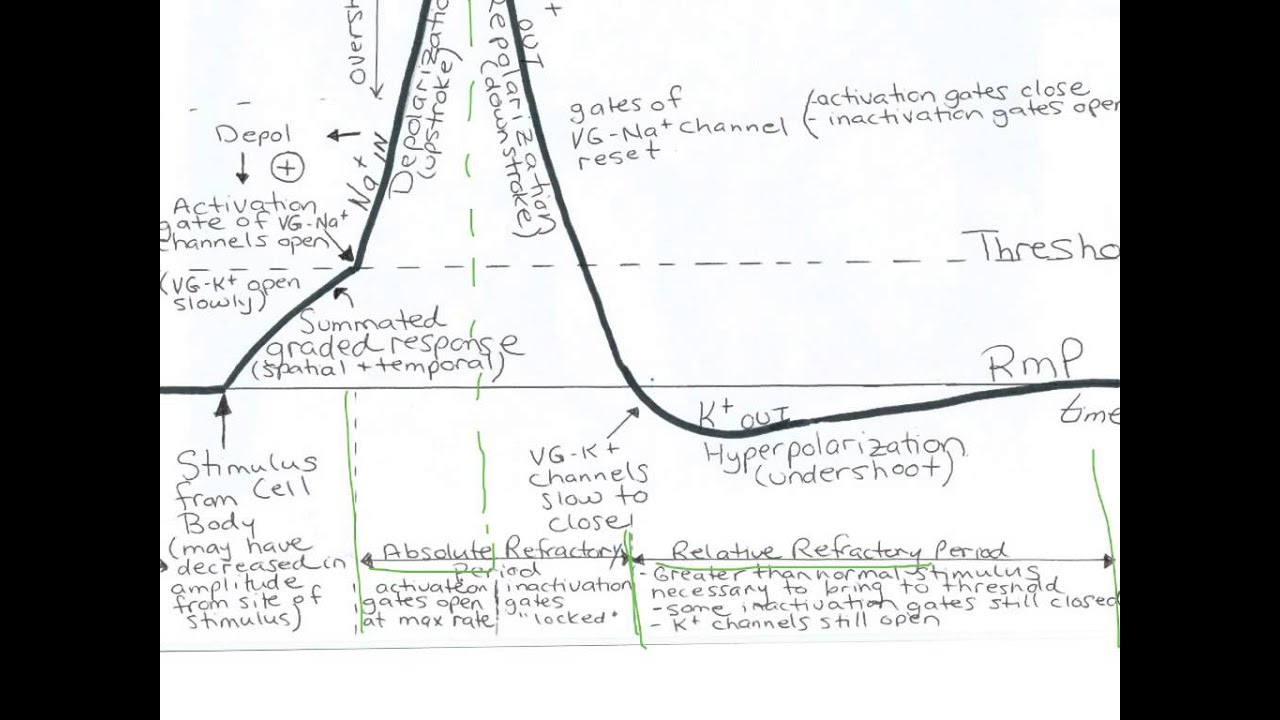 overs
Depolarizatio
(upstroke)
Repolarization
(downstroke)
+
out
Na+
IN
Depol
+
Activation
gate of VG-Na+
channels open
(VG-K+ open
slowly)
gates of
VG-Na+ channel
reset
(-activation gates close
- inactivation gates open
Thresho
Summated
graded response
(spatial + temporal)
RmP
time
K+ OUT
Hyperpolarization
(undershoot)
Stimulus
from Cell
Body
(may have
decreased in
amplitude
from site of
stimulus)
VG-K+
channels
slow to
close
Absolute Refractory
Period
activation
gates open
at max rate
inactivation
gates
"locked"
Relative Refractory Period
- Greater than normal stimulus
necessary to bring to threshold
- some inactivation gates still closed
- K+ channels still open